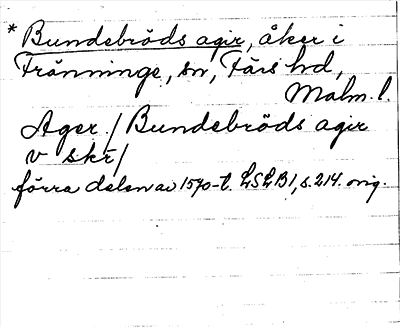 * Bundebröds agir, åker i
Tränninge, sn, Färs hd,
Malm. l.
Ager / Bundebröds agir
v skr /
förra delen av 1570-t. LSLB1, s. 214. orig.